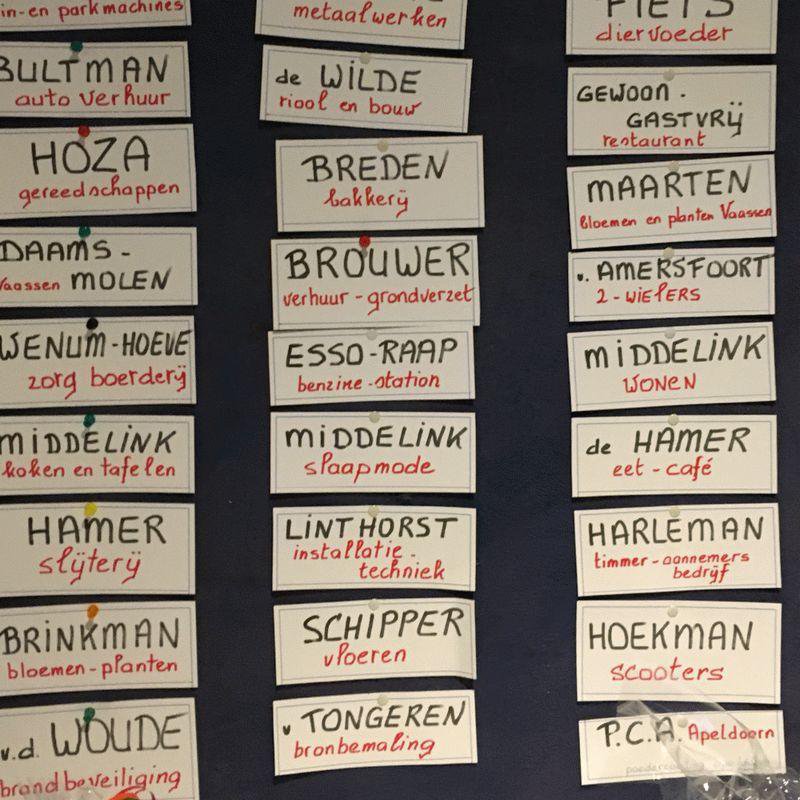 in-en parkmachines
BULTMAN
auto verhuur
HOZA
gereedschappen
DAAMS-
Vaassen MOLEN
WENUM-HOEVE
zorg boerderij
MIDDELINK
koken en tafelen
HAMER
slijterij
BRINKMAN
bloemen-planten
v.d. WOUDE
brandbeveiliging
metaalwerken
de WILDE
riool en bouw
BREDEN
bakkerij
BROUWER
verhuur-grondverzet
ESSO-RAAP
benzine-station
MIDDELINK
slaapmode
LINTHORST
installatie-
techniek
SCHIPPER
vloeren
v TONGEREN
bronbemaling
FIETS
diervoeder
GEWOON-
GASTVRIJ
restaurant
MAARTEN
bloemen en planten Vaassen
v. AMERSFOORT
2-wielers
MIDDELINK
WONEN
de HAMER
eet-café
HARLEMAN
timmer-aannemers
bedrijf
HOEKMAN
scooters
P.C.A. Apeldoorn